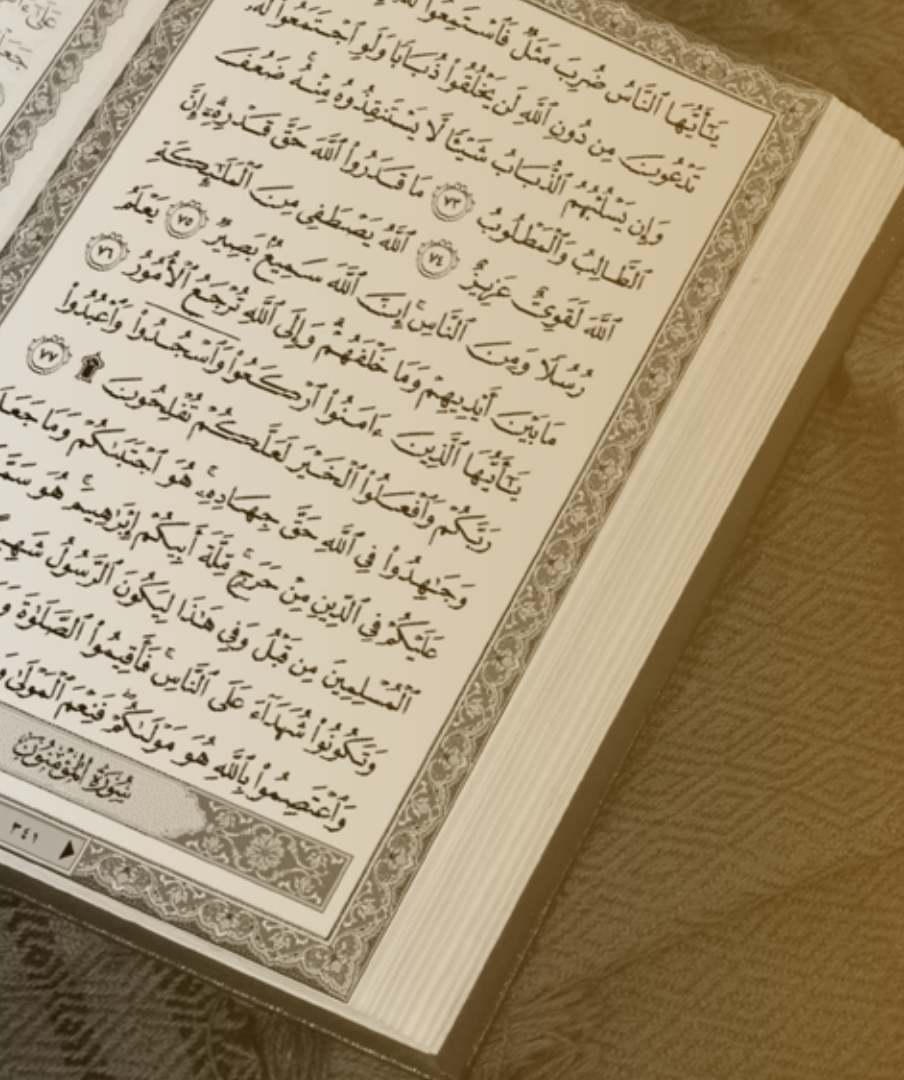 يَٰٓأَيُّهَا ٱلنَّاسُ ضُرِبَ مَثَلٌ فَٱسْتَمِعُوا۟
تَدْعُونَ مِن دُونِ ٱللَّهِ لَن يَخْلُقُوا۟ ذُبَابًا وَلَوِ ٱجْتَمَعُوا۟ لَهُۥ
وَإِن يَسْلُبْهُمُ ٱلذُّبَابُ شَيْـًٔا لَّا يَسْتَنقِذُوهُ مِنْهُ ۚ ضَعُفَ
ٱلطَّالِبُ وَٱلْمَطْلُوبُ ٧٣ مَا قَدَرُوا۟ ٱللَّهَ حَقَّ قَدْرِهِۦٓ ۗ إِنَّ
ٱللَّهَ لَقَوِىٌّ عَزِيزٌ ٧٤ ٱللَّهُ يَصْطَفِى مِنَ ٱلْمَلَٰٓئِكَةِ
رُسُلًا وَمِنَ ٱلنَّاسِ ۚ إِنَّ ٱللَّهَ سَمِيعٌۢ بَصِيرٌ ٧٥ يَعْلَمُ
مَا بَيْنَ أَيْدِيهِمْ وَمَا خَلْفَهُمْ ۗ وَإِلَى ٱللَّهِ تُرْجَعُ ٱلْأُمُورُ ٧٦
يَٰٓأَيُّهَا ٱلَّذِينَ ءَامَنُوا۟ ٱرْكَعُوا۟ وَٱسْجُدُوا۟ وَٱعْبُدُوا۟
رَبَّكُمْ وَٱفْعَلُوا۟ ٱلْخَيْرَ لَعَلَّكُمْ تُفْلِحُونَ ۩ ٧٧
وَجَٰهِدُوا۟ فِى ٱللَّهِ حَقَّ جِهَادِهِۦ ۚ هُوَ ٱجْتَبَىٰكُمْ وَمَا جَعَلَ
عَلَيْكُمْ فِى ٱلدِّينِ مِنْ حَرَجٍ ۚ مِّلَّةَ أَبِيكُمْ إِبْرَٰهِيمَ ۚ هُوَ
ٱلْمُسْلِمِينَ مِن قَبْلُ وَفِى هَٰذَا لِيَكُونَ ٱلرَّسُولُ
وَتَكُونُوا۟ شُهَدَآءَ عَلَى ٱلنَّاسِ ۚ فَأَقِيمُوا۟ ٱلصَّلَوٰةَ
وَٱعْتَصِمُوا۟ بِٱللَّهِ هُوَ مَوْلَىٰكُمْ ۖ فَنِعْمَ ٱلْمَوْلَىٰ
سُورَةُ الْمُؤْمِنُونَ
٣٤١